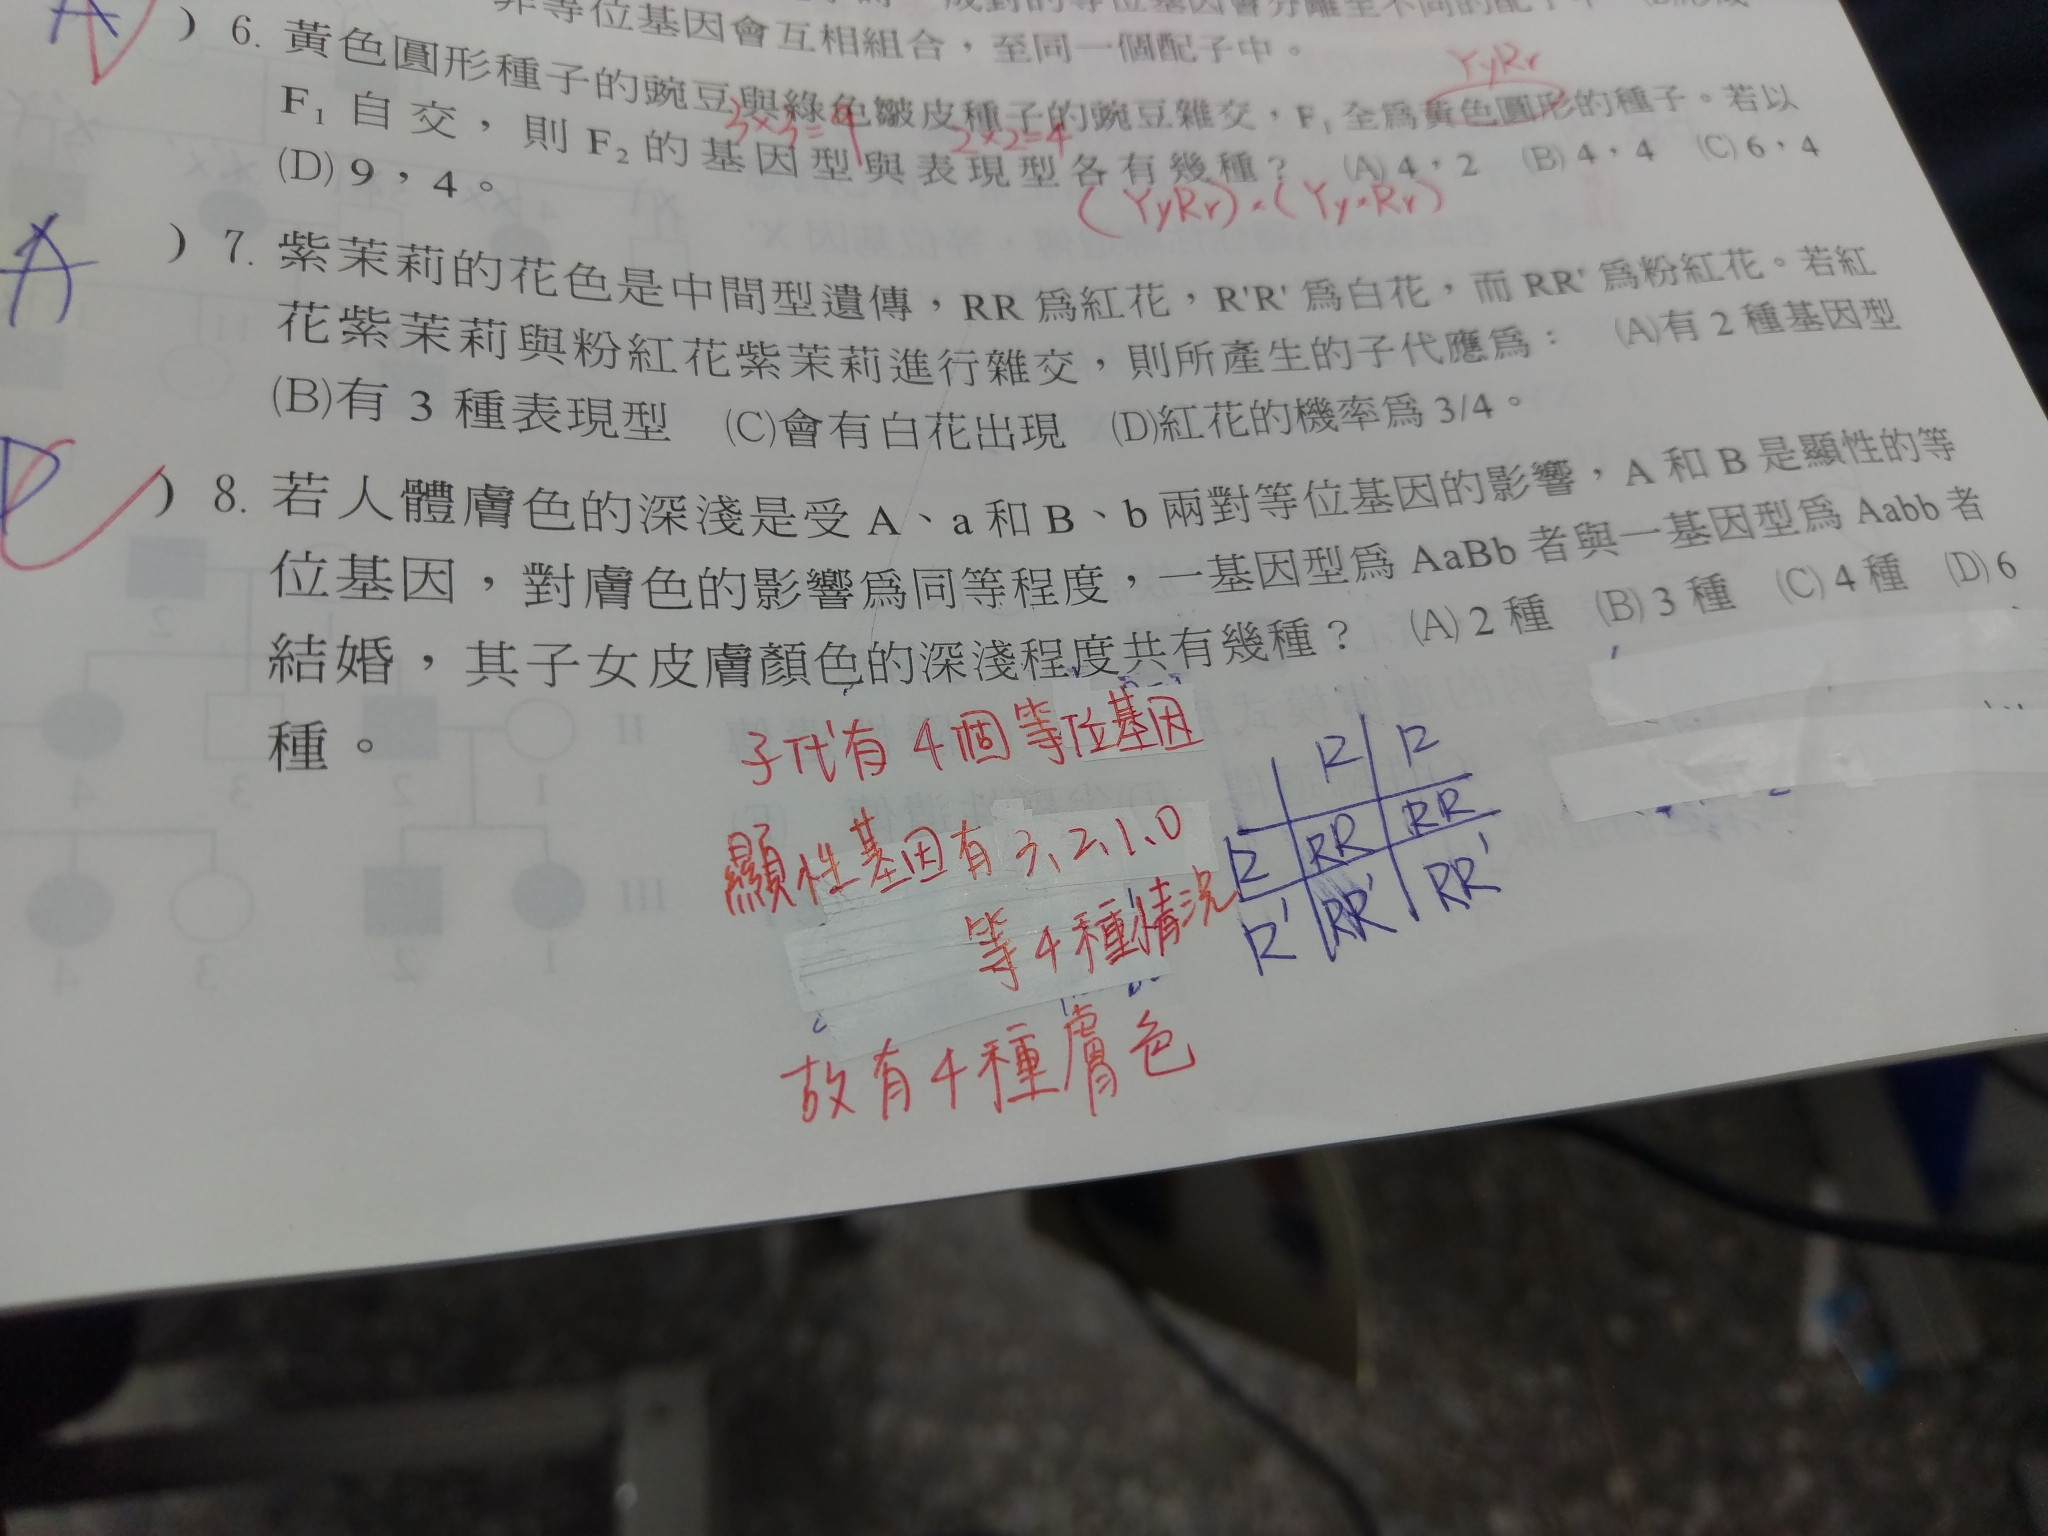 非等位基因會互相組合，至同一個配子中。
YyRr
A
) 6. 黃色圓形種子的豌豆與綠色皺皮種子的豌豆雜交，F₁ 全為黃色圓形的種子。若以
3×3=9 2×2=4
F₁ 自交，則 F₂ 的基因型與表現型各有幾種？ (A) 4，2 (B) 4，4 (C) 6，4
(D) 9，4。
(YyRr)×(Yy×Rr)
A
) 7. 紫茉莉的花色是中間型遺傳，RR 為紅花，R'R' 為白花，而 RR' 為粉紅花。若紅
花紫茉莉與粉紅花紫茉莉進行雜交，則所產生的子代應為： (A)有 2 種基因型
(B)有 3 種表現型 (C)會有白花出現 (D)紅花的機率為 3/4。
) 8. 若人體膚色的深淺是受 A、a 和 B、b 兩對等位基因的影響，A 和 B 是顯性的等
位基因，對膚色的影響為同等程度，一基因型為 AaBb 者與一基因型為 Aabb 者
結婚，其子女皮膚顏色的深淺程度共有幾種？ (A) 2 種 (B) 3 種 (C) 4 種 (D) 6
種。
子代有 4 個等位基因
顯性基因有 3、2、1、0
等 4 種情況
故有 4 種膚色
R R
R RR RR
R' RR' RR'
II
4 3 2 1
III
4 3 2 1